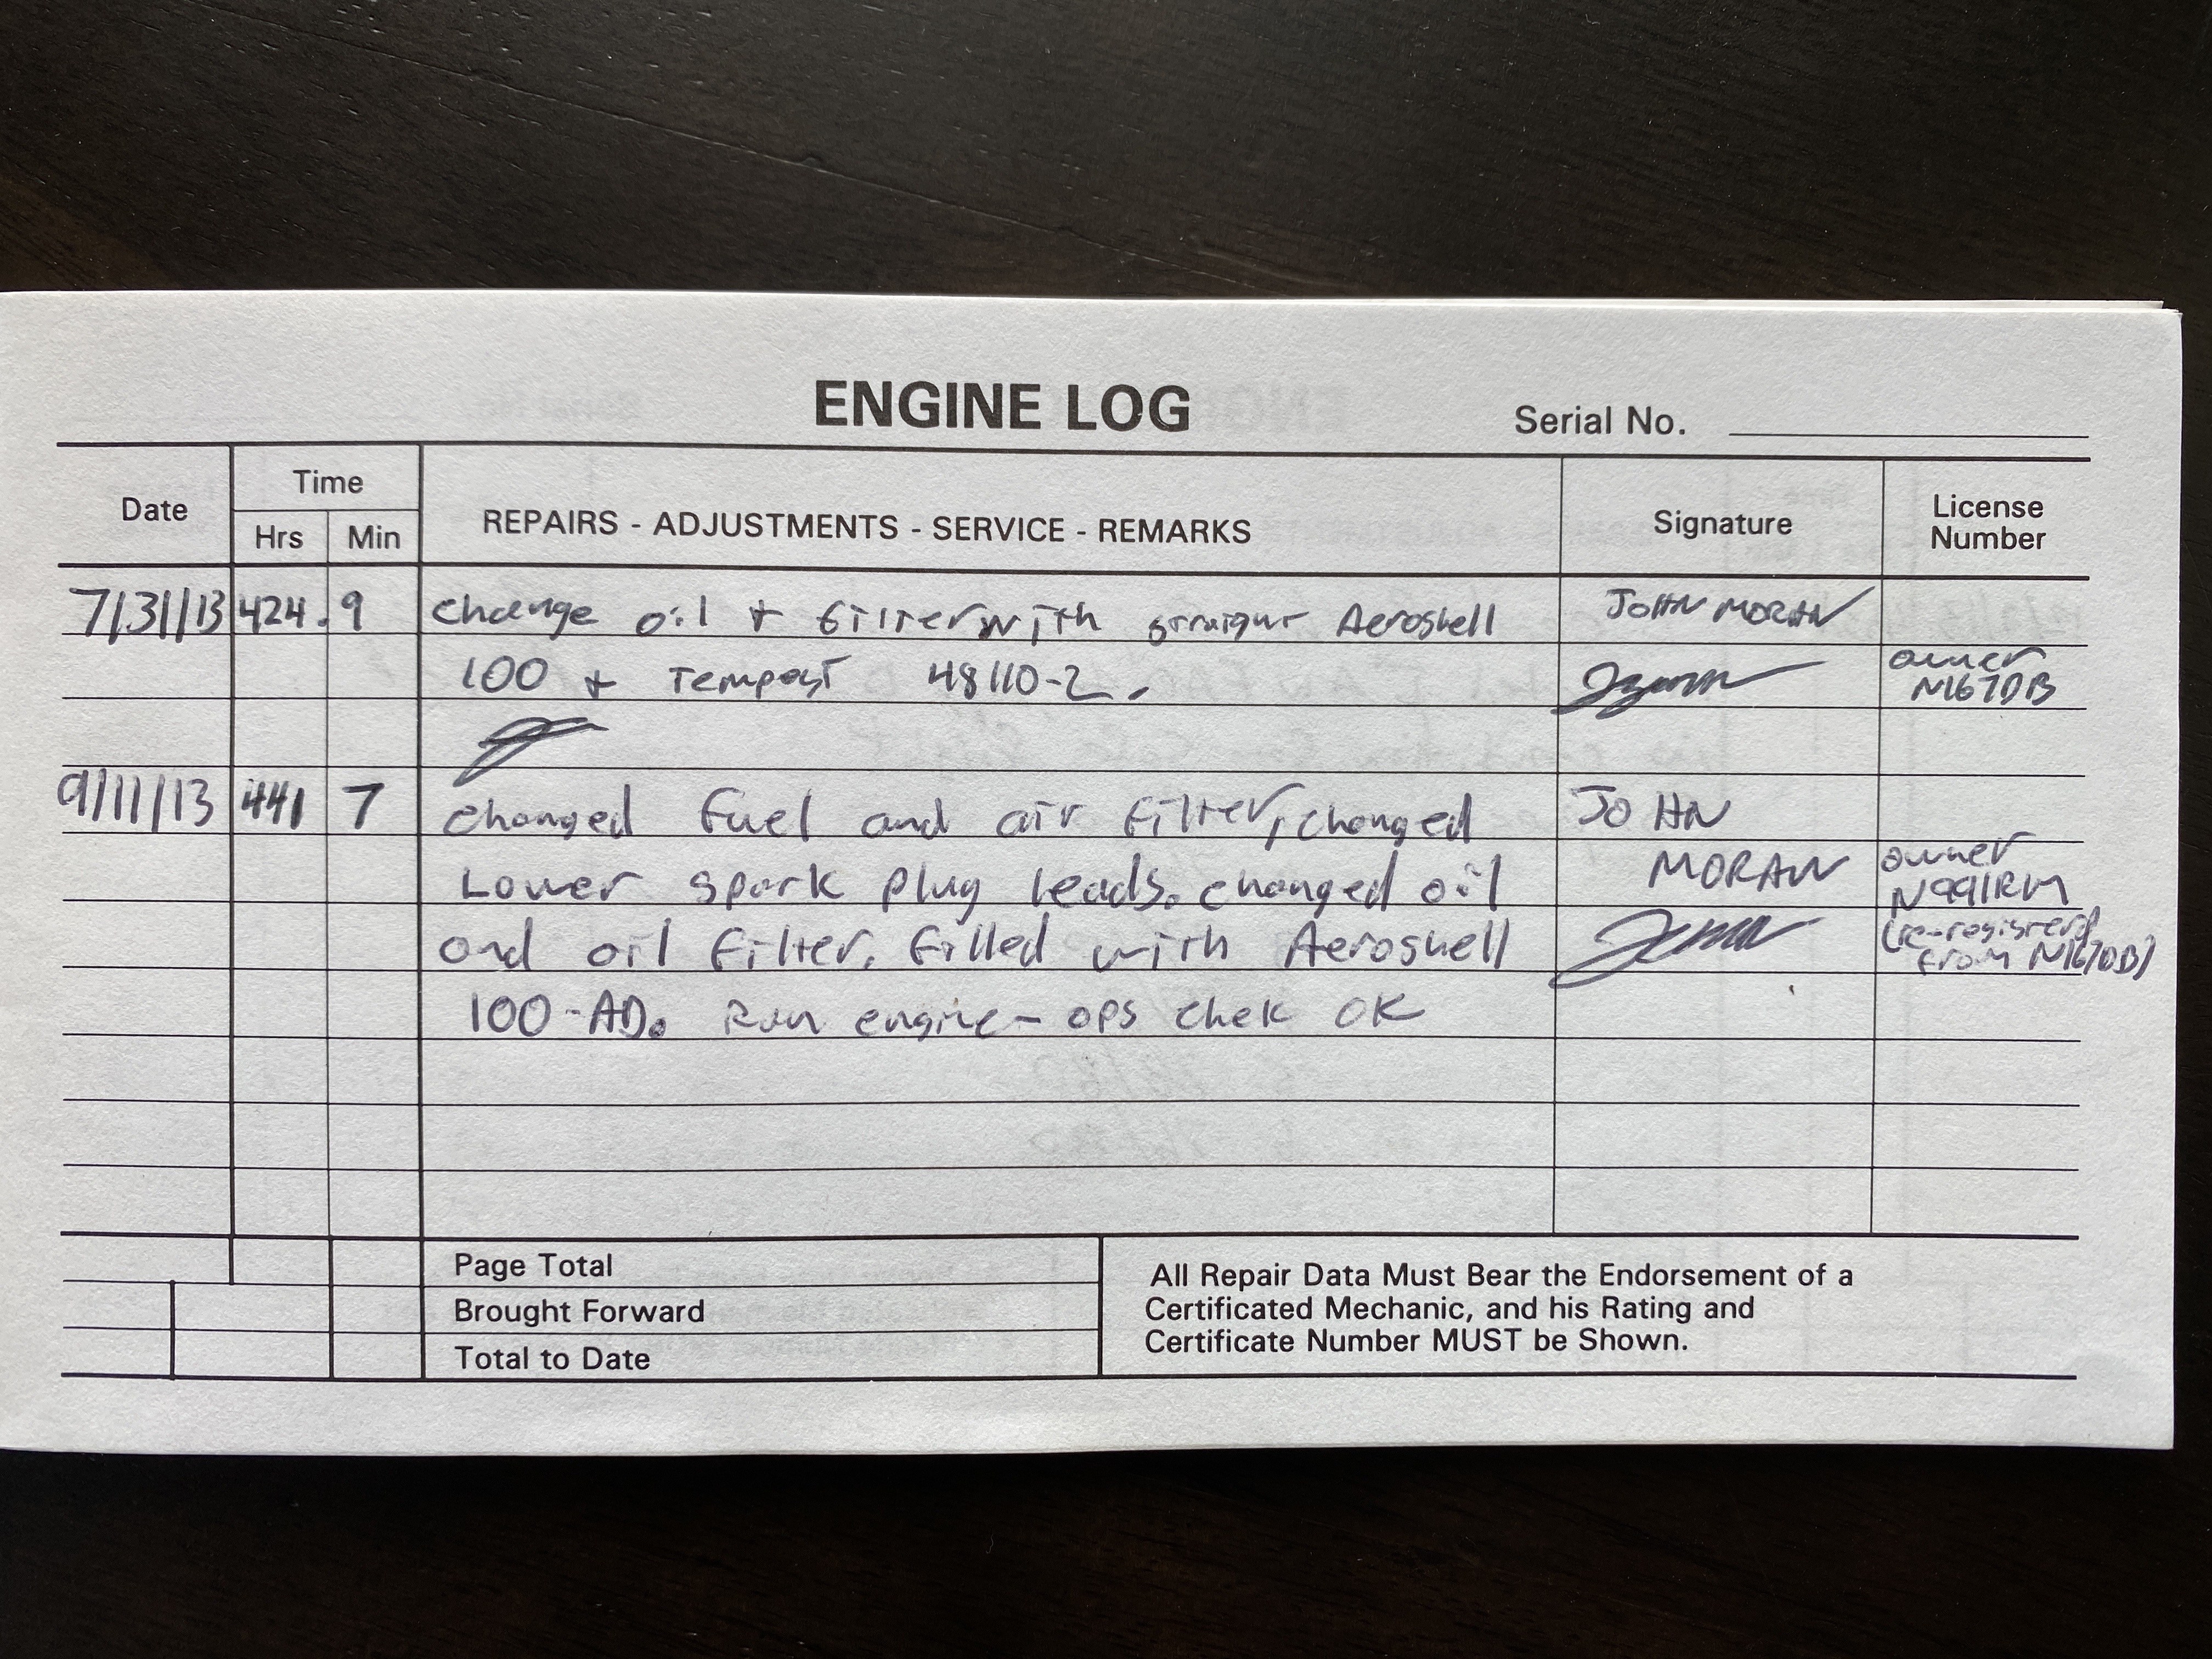 ENGINE LOG
Serial No.
Date
Time
Hrs Min
REPAIRS - ADJUSTMENTS - SERVICE - REMARKS
Signature
License
Number
7/31/13 424.9 Change oil + filter with straight Aeroshell JOHN MORAN
100 + Tempest 48110-2. owner
N1670B
9/11/13 441 7 changed fuel and air filter, changed JOHN
Lower spark plug leads. changed oil MORAN owner
N991RM
and oil filter. filled with Aeroshell (re-registered
from N1670B)
100-AD. Run engine - ops chek OK
Page Total
Brought Forward
Total to Date
All Repair Data Must Bear the Endorsement of a
Certificated Mechanic, and his Rating and
Certificate Number MUST be Shown.